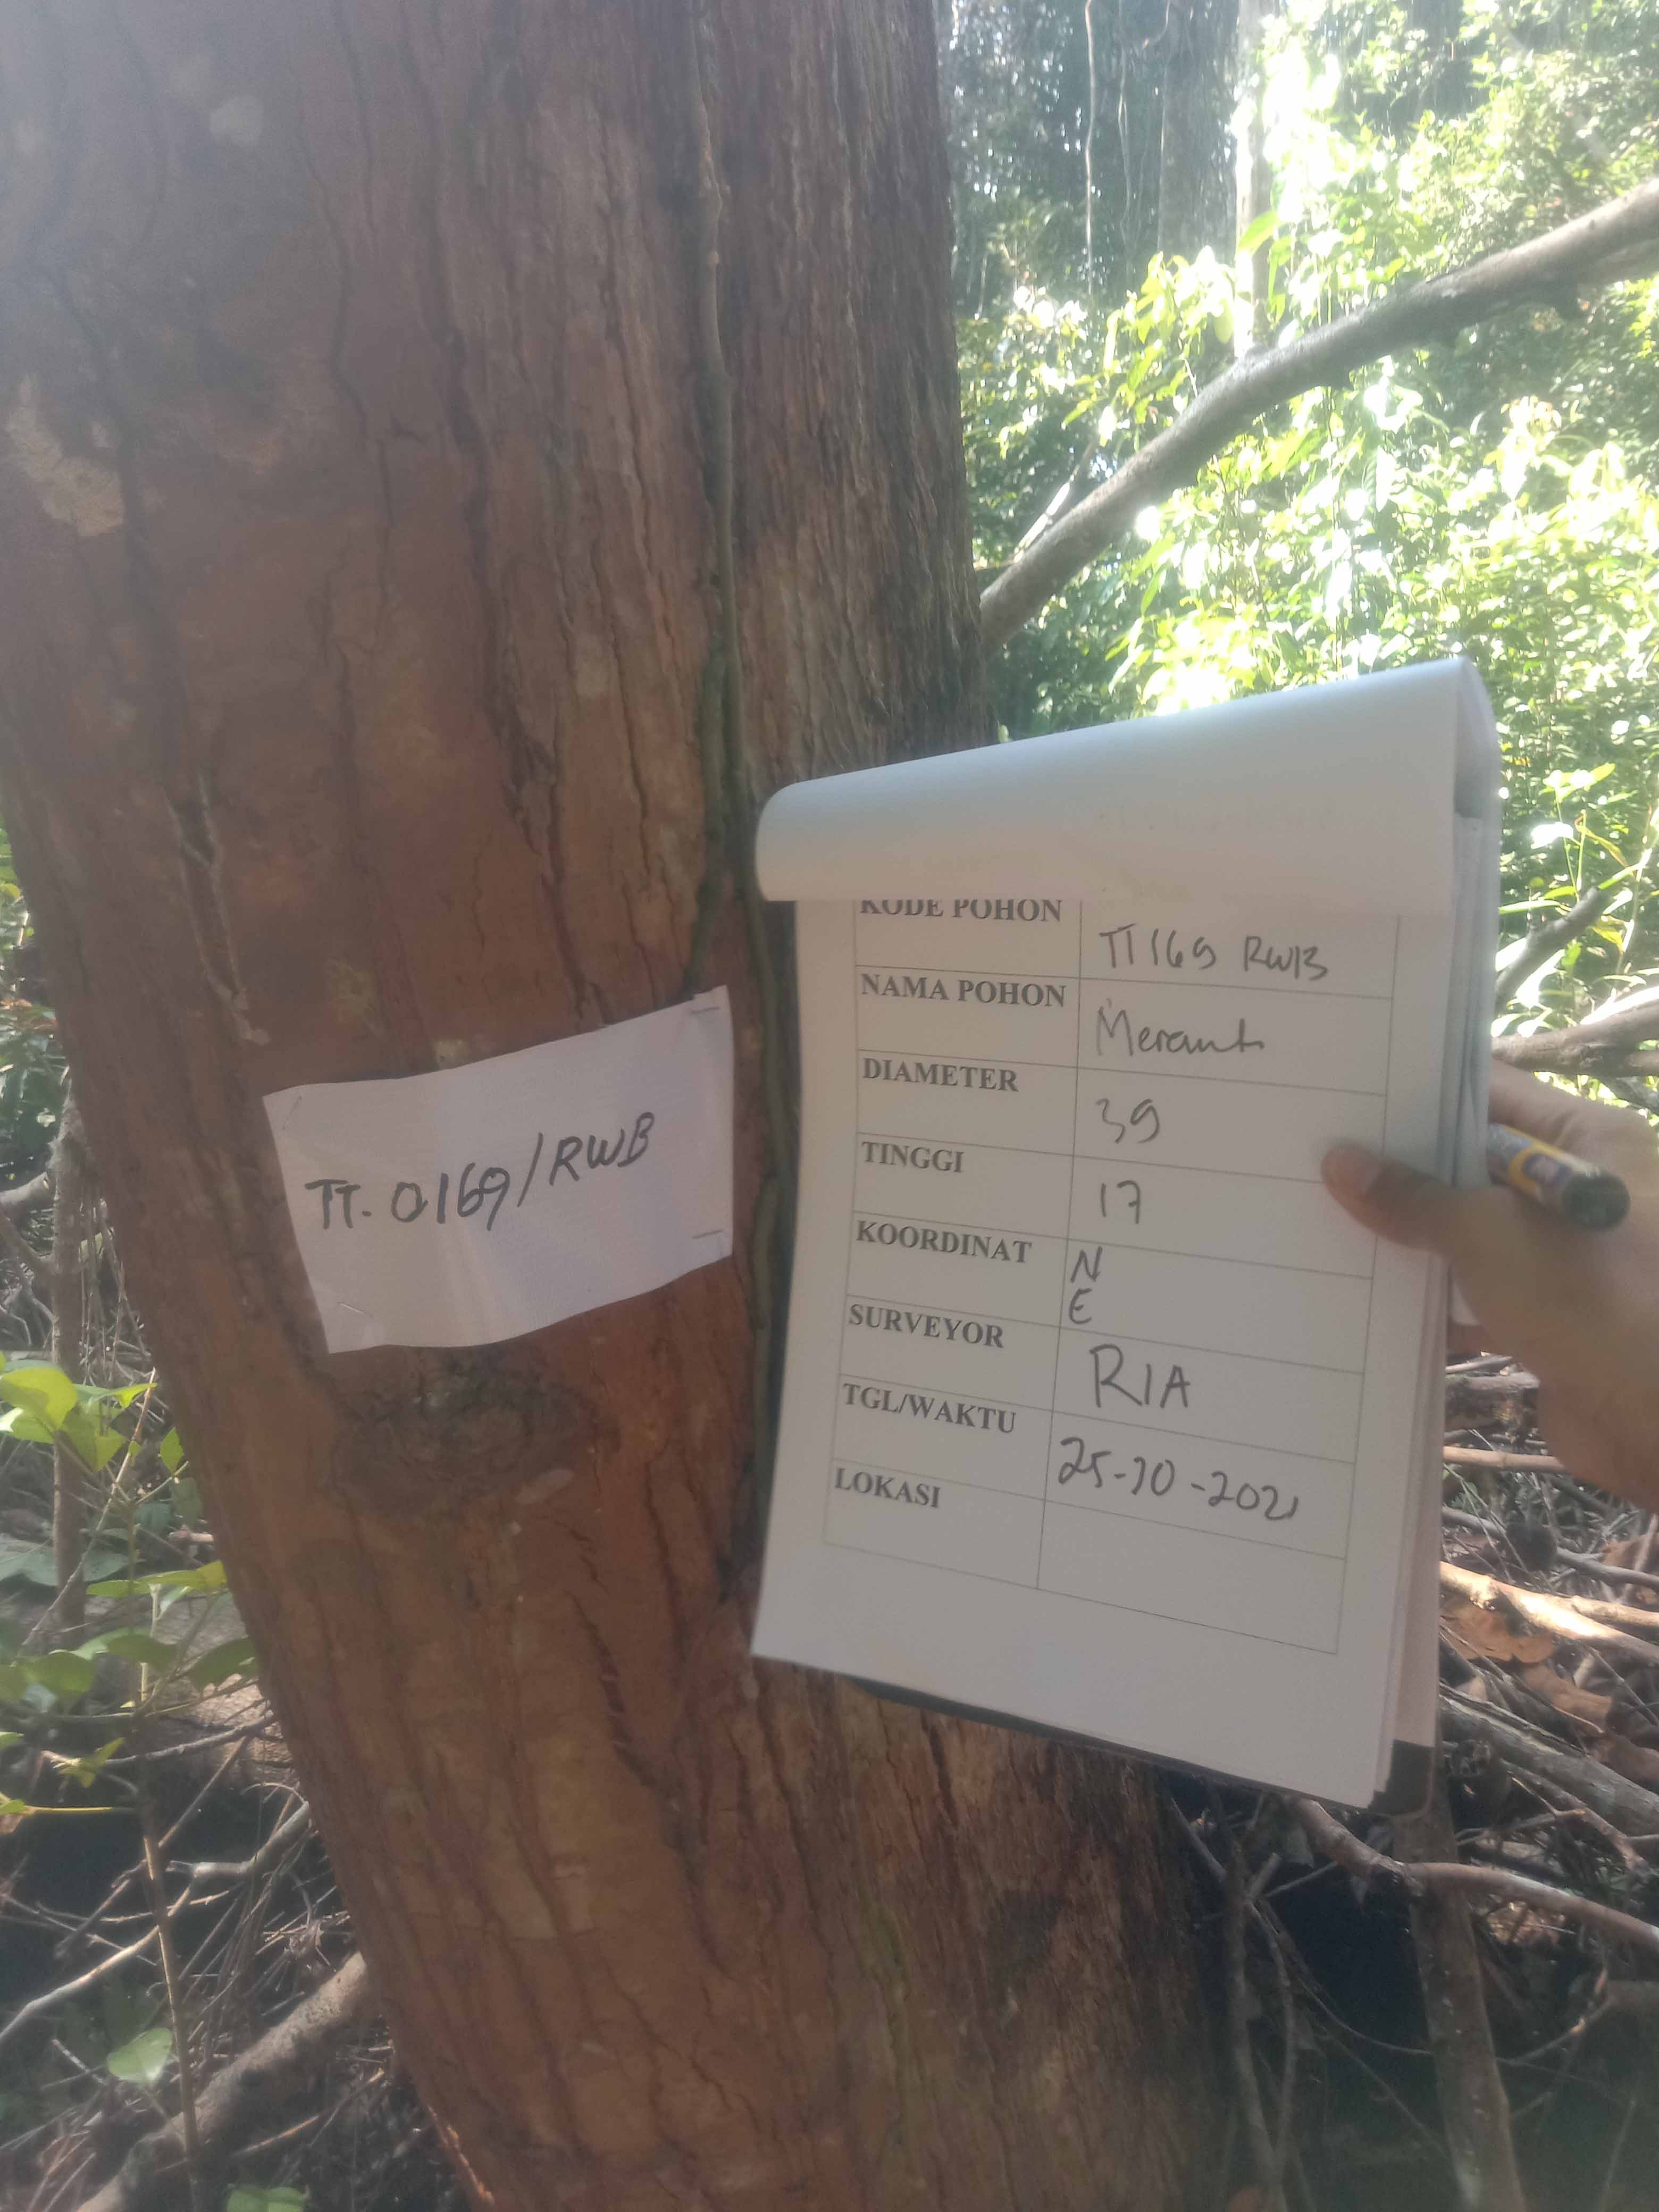 TT. 0169/RWB
KODE POHON TT 169 RWB
NAMA POHON Meranti
DIAMETER 39
TINGGI 17
KOORDINAT N
E
SURVEYOR RIA
TGL/WAKTU 25-10-2021
LOKASI